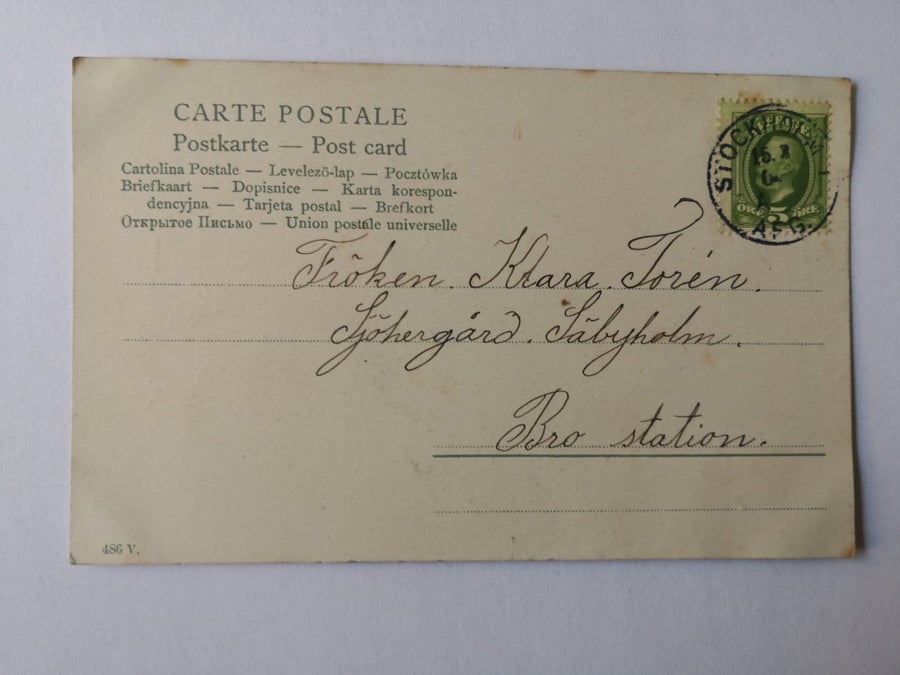 CARTE POSTALE
Postkarte — Post card
Cartolina Postale — Levelezö-lap — Pocztówka
Briefkaart — Dopisnice — Karta korespon-
dencyjna — Tarjeta postal — Brefkort
Открытое Письмо — Union postale universelle
Fröken. Klara. Torén.
Sjöhergård. Säbyholm.
Bro station.
486 V.
ÖRE 5 ÖRE
STOCKHOLM
AFG.